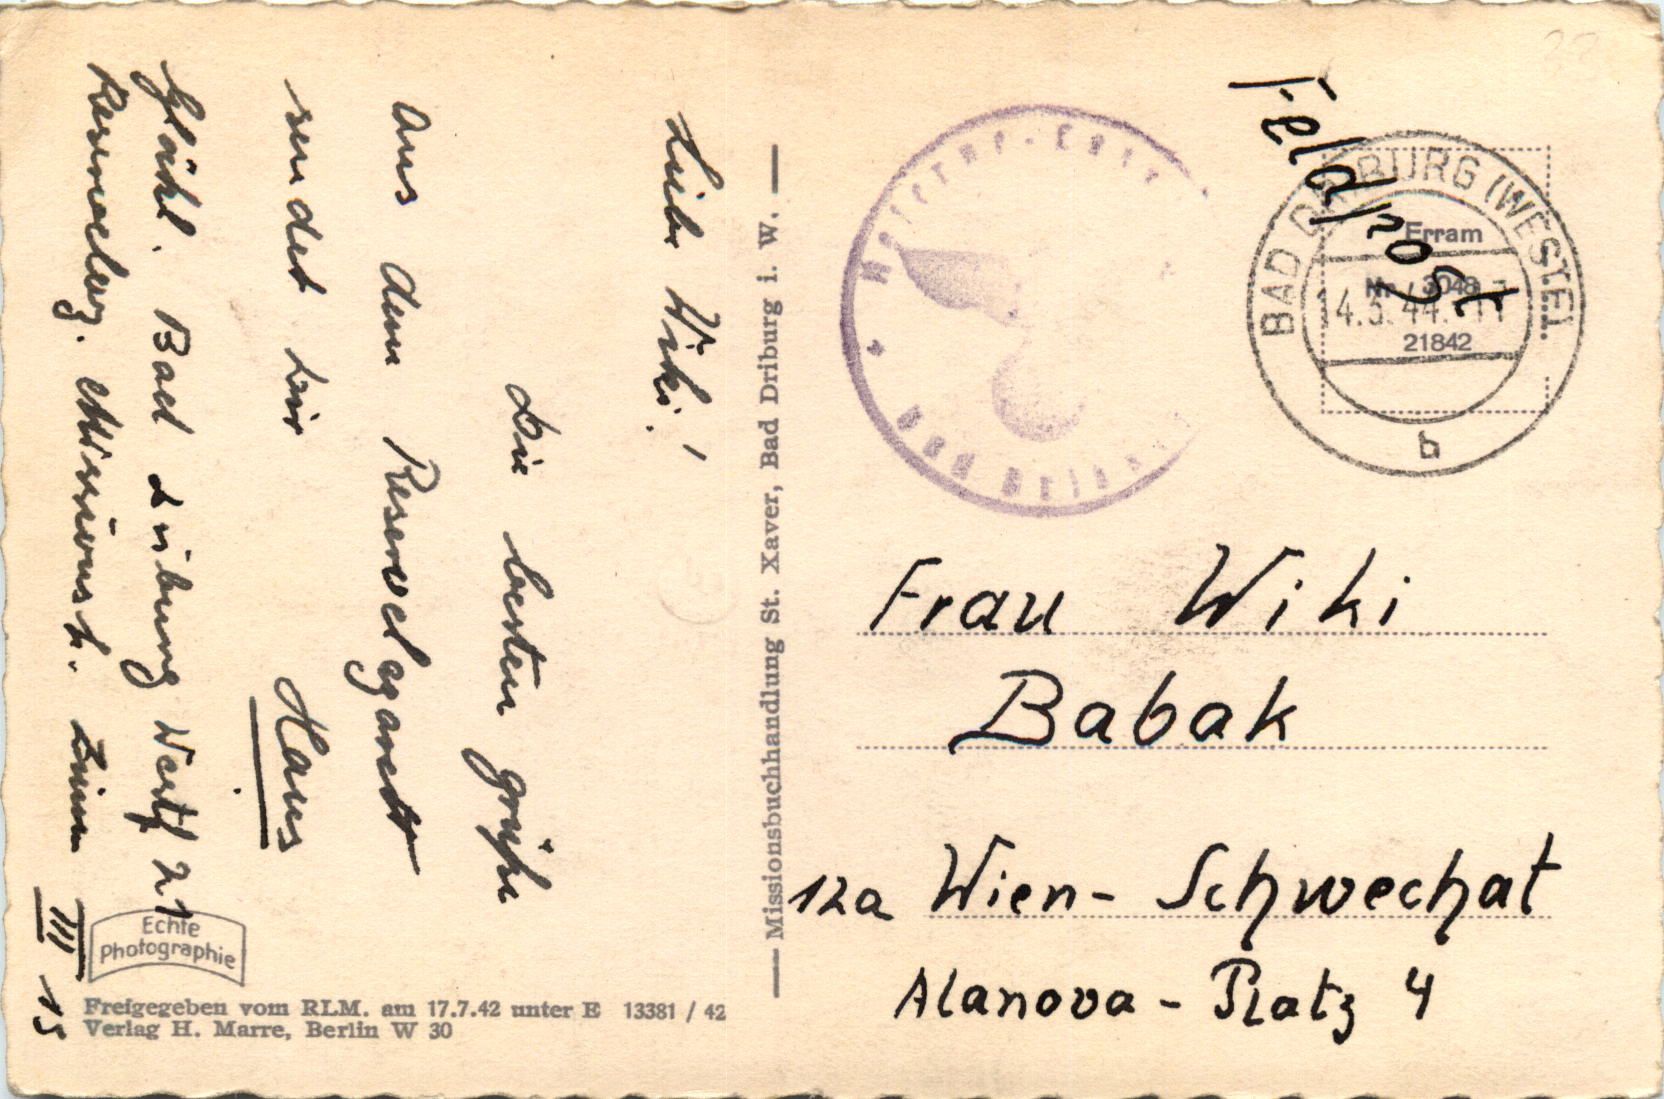 Liebe Wiki!
Die besten Grüße
aus dem Reservelazarett
sendet Dir
Hans
Bad Driburg Westf 21
Reservelaz. Zimm III 15
Echte
Photographie
Freigegeben vom RLM. am 17.7.42 unter E 13381 / 42
Verlag H. Marre, Berlin W 30
Missionsbuchhandlung St. Xaver, Bad Driburg i. W.
Feldpost
BAD DRIBURG (WESTF)
Erram
Nr. 3048
14.3.44
21842
b
Frau Wiki
Babak
12a Wien-Schwechat
Alanova-Platz 4